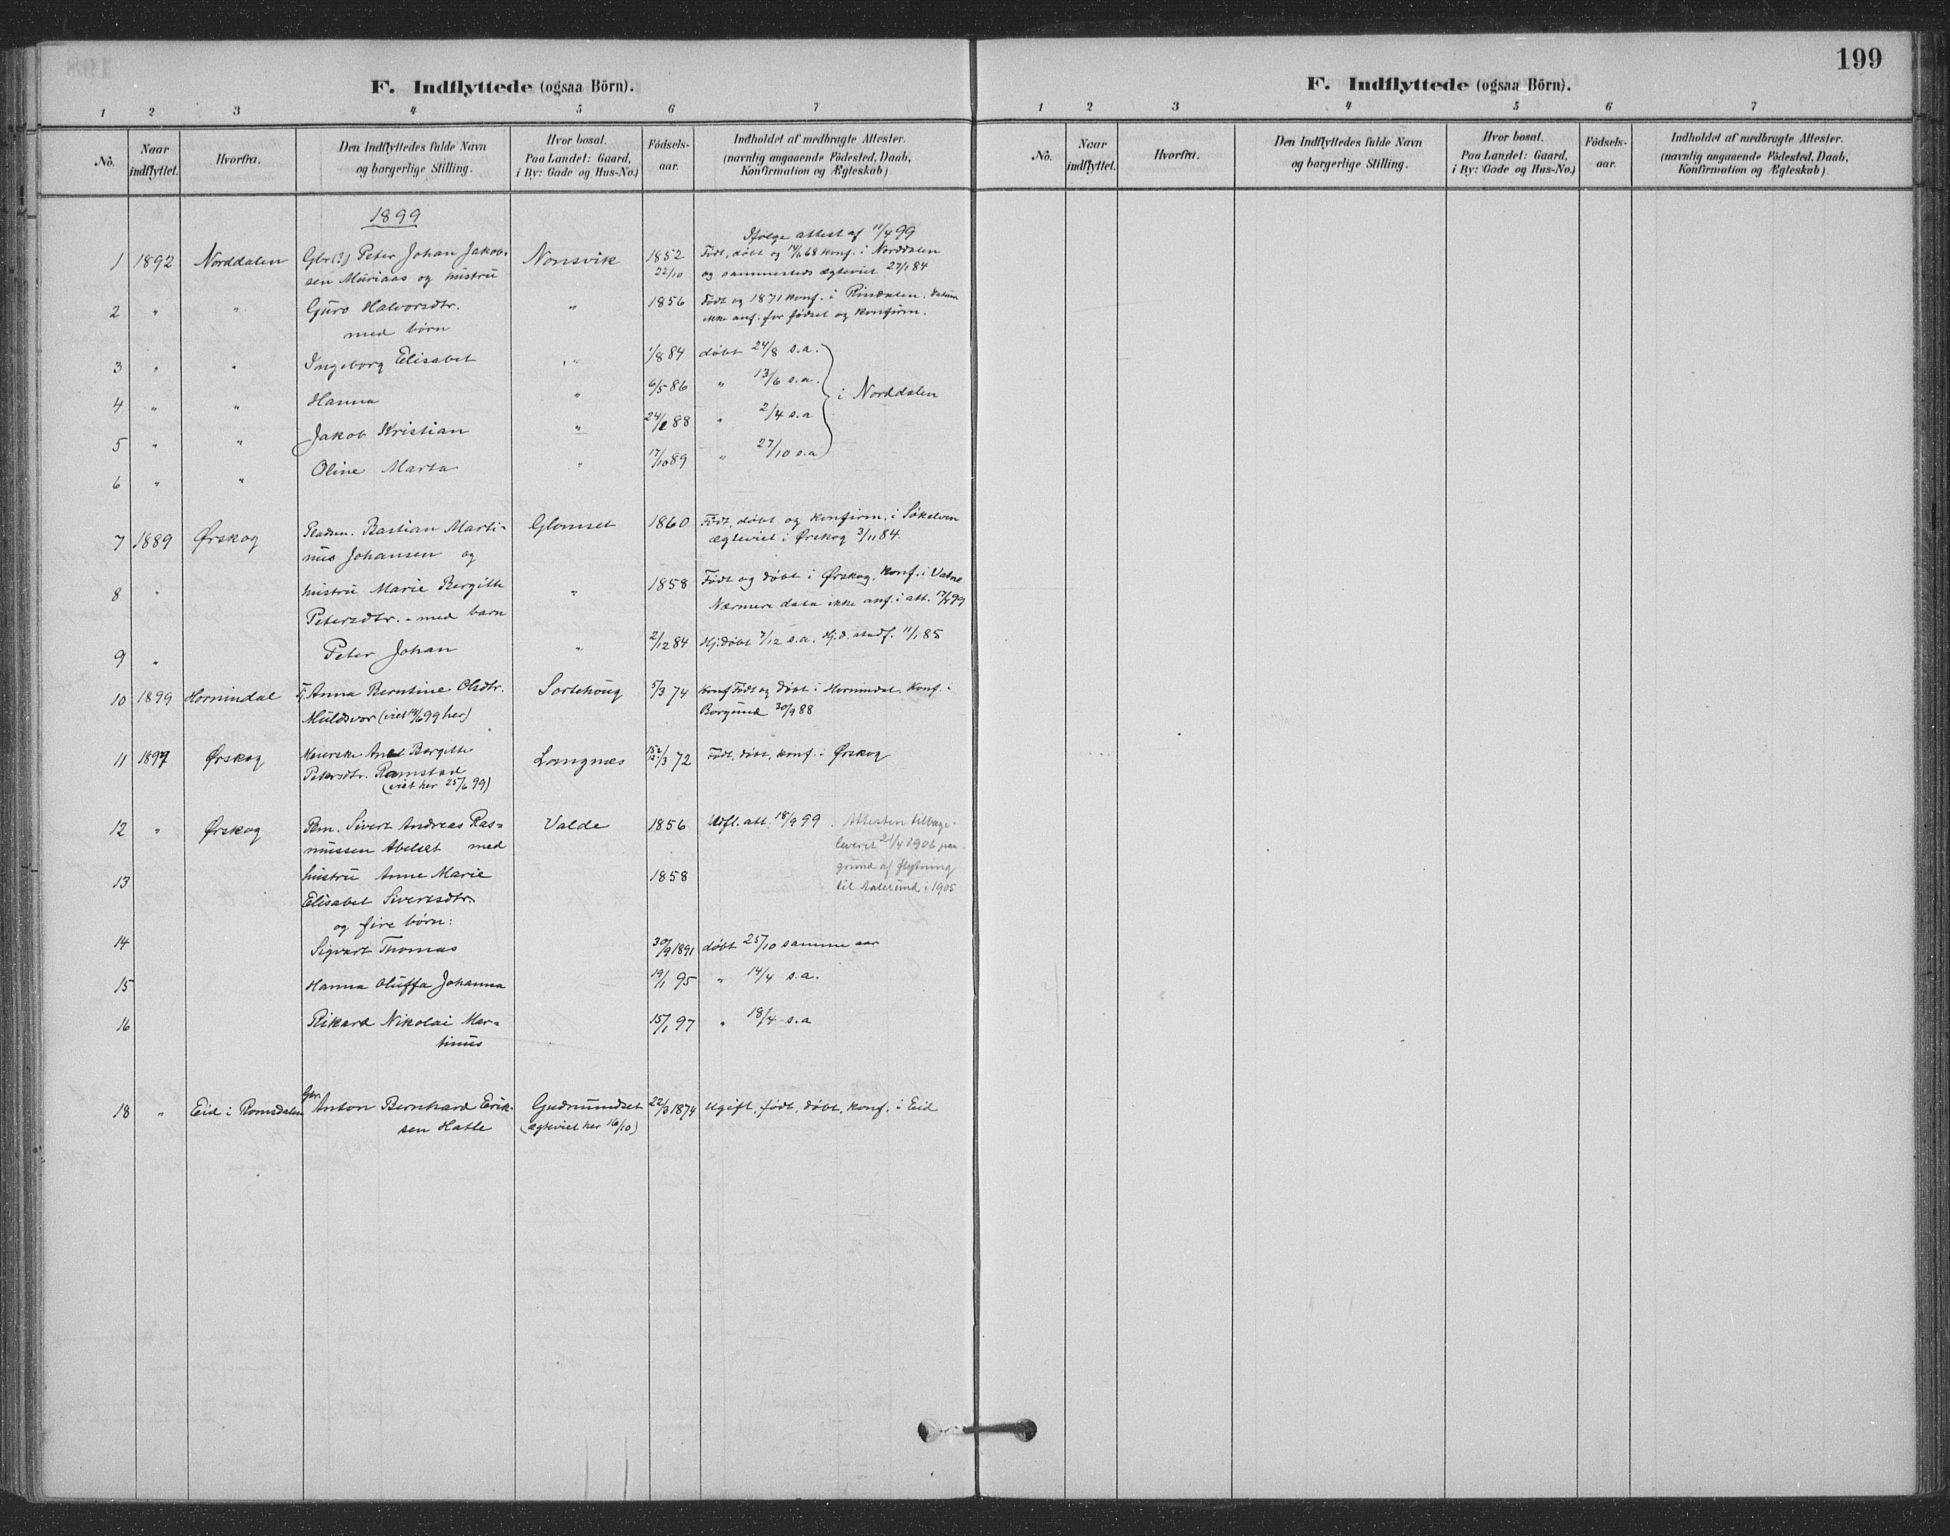 F. Indflyttede (ogsaa Börn).
1 2 3 4 5 6 7
No. Naar indflyttet. Hvorfra. Den Indflyttedes fulde Navn og borgerlige Stilling. Hvor bosat. Paa Landet: Gaard, i By: Gade og Hus-No.) Födsels-aar. Indholdet af medbragte Attester. (navnlig angaaende Födested, Daab, Konfirmation og Ægteskab)
1899
Ifølge attest af 11/4 99
1 1892 Norddalen Gbr(?) Peter Johan Jakob- Nonsvik 1852 Født, døbt og 14/6 68 konf. i Norddalen
sen Muriaas og hustru 22/10 og sammesteds ægteviet 27/1 84
2 " " Guro Halvorsdtr. " 1856 Født og 1871 konf. i Rindalen. datum
med børn ikke anf. for fødsel og konfirm.
3 " " Ingeborg Elisabet " 1/8 84 døbt 24/8 s.a.
4 " " Hanna " 6/5 86 " 13/6 s.a. i Norddalen
5 " " Jakob Kristian " 24/2 88 " 2/4 s.a
6 " " Oline Marta " 17/10 89 " 27/10 s.a
7 1889 Ørskog Pladsm. Bastian Marti- Glomset 1860 Født, døbt og konfirm. i Søkelven
nus Johansen og ægteviet i Ørskog 3/11 84
8 " hustru Marie Bergitte " 1858 Født og døbt i Ørskog, konf. i Vatne
Petersdtr. - med barn Nærmere data ikke anf. i att. 99
9 " Peter Johan " 2/12 84 Hj.døbt 7/12 s.a. Hj.d. stadf. 11/1 85
10 1899 Hornindal Anna Berntine Olsdtr. Sortehoug 5/3 74 Konf Født og døbt i Hornindal. Konf. i
Muldsvor (viet 14/6 99 her) Borgund 30/9 88
11 1897 Ørskog Bergitte Langnæs 72 Født, døbt, konf. i Ørskog
Petersdtr. Ramstad
(viet her 25/6 99)
12 " Ørskog Pm. Sivert Andreas Ras- Valde 1856 Udfl. att. 18/9 99. Attesten tilbage-
mussen Abelset med leveret 21/4 1906 paa
13 hustru Anne Marie 1858 grund af flytning
Elisabet Sivertsdtr. til Aalesund i 1905
og fire børn:
14 Sigvart Thomas 30/9 1891 døbt 25/10 samme aar
15 Hanna Oluffa Johanna 19/1 95 " 14/4 s.a.
16 Rikard Nikolai Mar- 15/1 97 " 18/4 s.a
tinus
18 " Eid i Romsdalen Gbr. Anton Bernhard Erik- Gudmundset 22/3 1874 Ugift, født, døbt, konf. i Eid
sen Hatle (ægteviet her 16/10)
199
F. Indflyttede (ogsaa Börn).
1 2 3 4 5 6 7
No. Naar indflyttet. Hvorfra. Den Indflyttedes fulde Navn og borgerlige Stilling. Hvor bosat. Paa Landet: Gaard, i By: Gade og Hus-No.) Födsels-aar. Indholdet af medbragte Attester. (navnlig angaaende Födested, Daab, Konfirmation og Ægteskab)